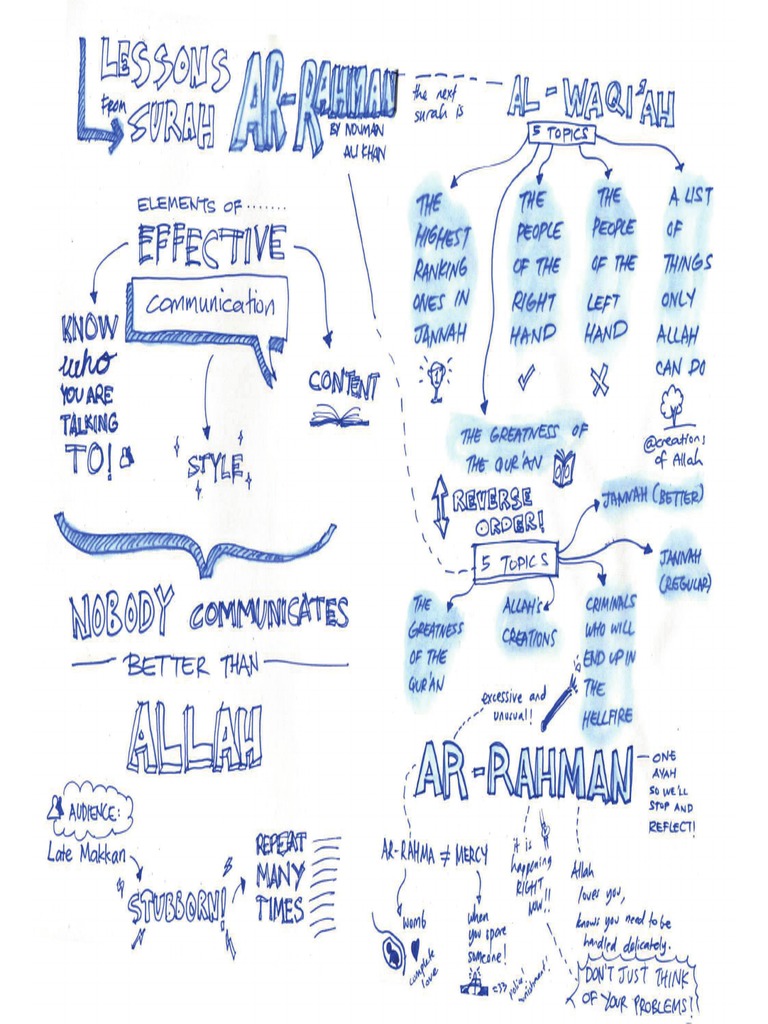 LESSONS
from
SURAH
AR-RAHMAN
BY NOUMAN
ALI KHAN
the next
surah is
AL-WAQI'AH
5 TOPICS
THE
HIGHEST
RANKING
ONES IN
JANNAH
THE
PEOPLE
OF THE
RIGHT
HAND
THE
PEOPLE
OF THE
LEFT
HAND
A LIST
OF
THINGS
ONLY
ALLAH
CAN DO
@creations
of Allah
THE GREATNESS OF
THE QUR'AN
ELEMENTS OF ........
EFFECTIVE
communication
KNOW
who
YOU ARE
TALKING
TO!
STYLE
CONTENT
NOBODY COMMUNICATES
BETTER THAN
ALLAH
REVERSE
ORDER!
5 TOPICS
JANNAH (BETTER)
JANNAH
(REGULAR)
CRIMINALS
WHO WILL
END UP IN
THE
HELLFIRE
ALLAH'S
CREATIONS
THE
GREATNESS
OF THE
QUR'AN
AUDIENCE:
Late Makkan
STUBBORN!
REPEAT
MANY
TIMES
excessive and
unusual!!
AR-RAHMAN
ONE
AYAH
SO WE'LL
STOP AND
REFLECT!
AR-RAHMA ≠ MERCY
womb
complete
love
when
you spare
someone!
it is
happening
RIGHT
NOW!!
Allah
loves you,
knows you need to be
handled delicately.
DON'T JUST THINK
OF YOUR PROBLEMS!